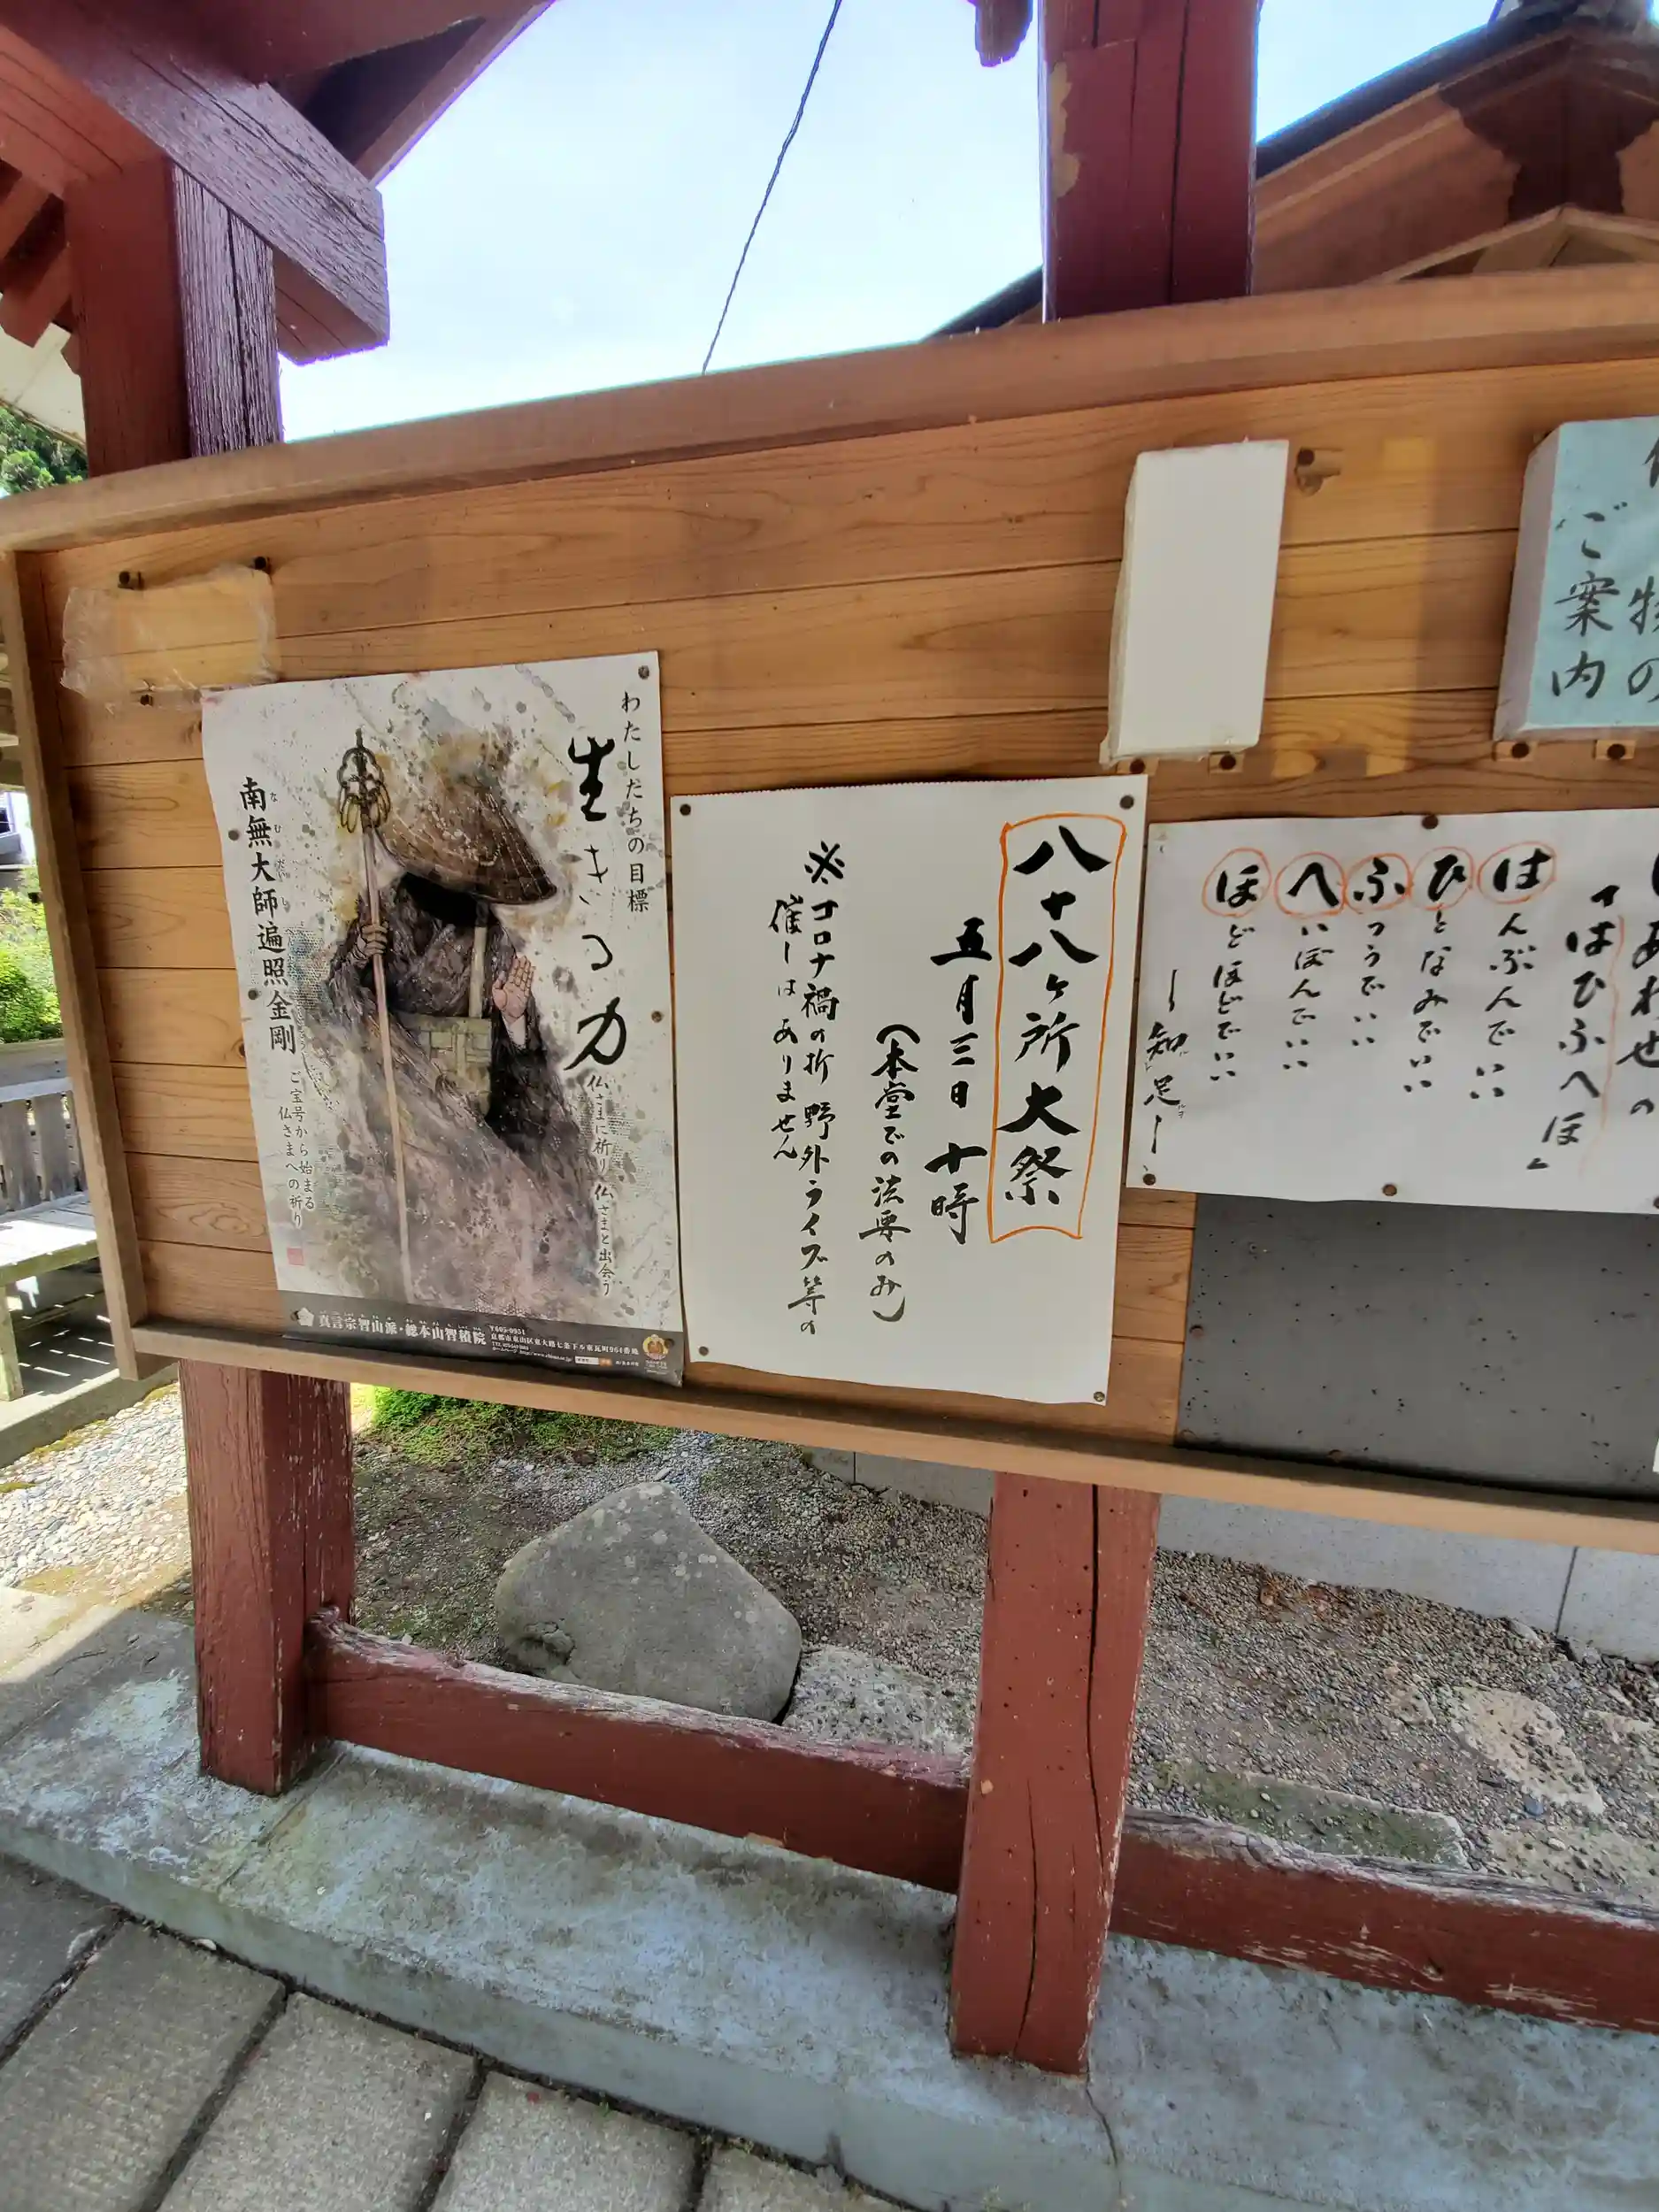 ご案内
しあわせの
「はひふへほ」
はんぶんでいい
ひとなみでいい
ふつうでいい
へいぼんでいい
ほどほどでいい
ー知足ー
八十八ヶ所大祭
五月三日 十時
(本堂での法要のみ)
※コロナ禍の折 野外ライブ等の
催しはありません
わたしたちの目標
生きる力
仏さまに祈り 仏さまと出会う
南無大師遍照金剛
なむだいし
ご宝号から始まる
仏さまへの祈り
真言宗智山派・総本山智積院
〒605-0951
京都市東山区東大路七条下る東瓦町964番地